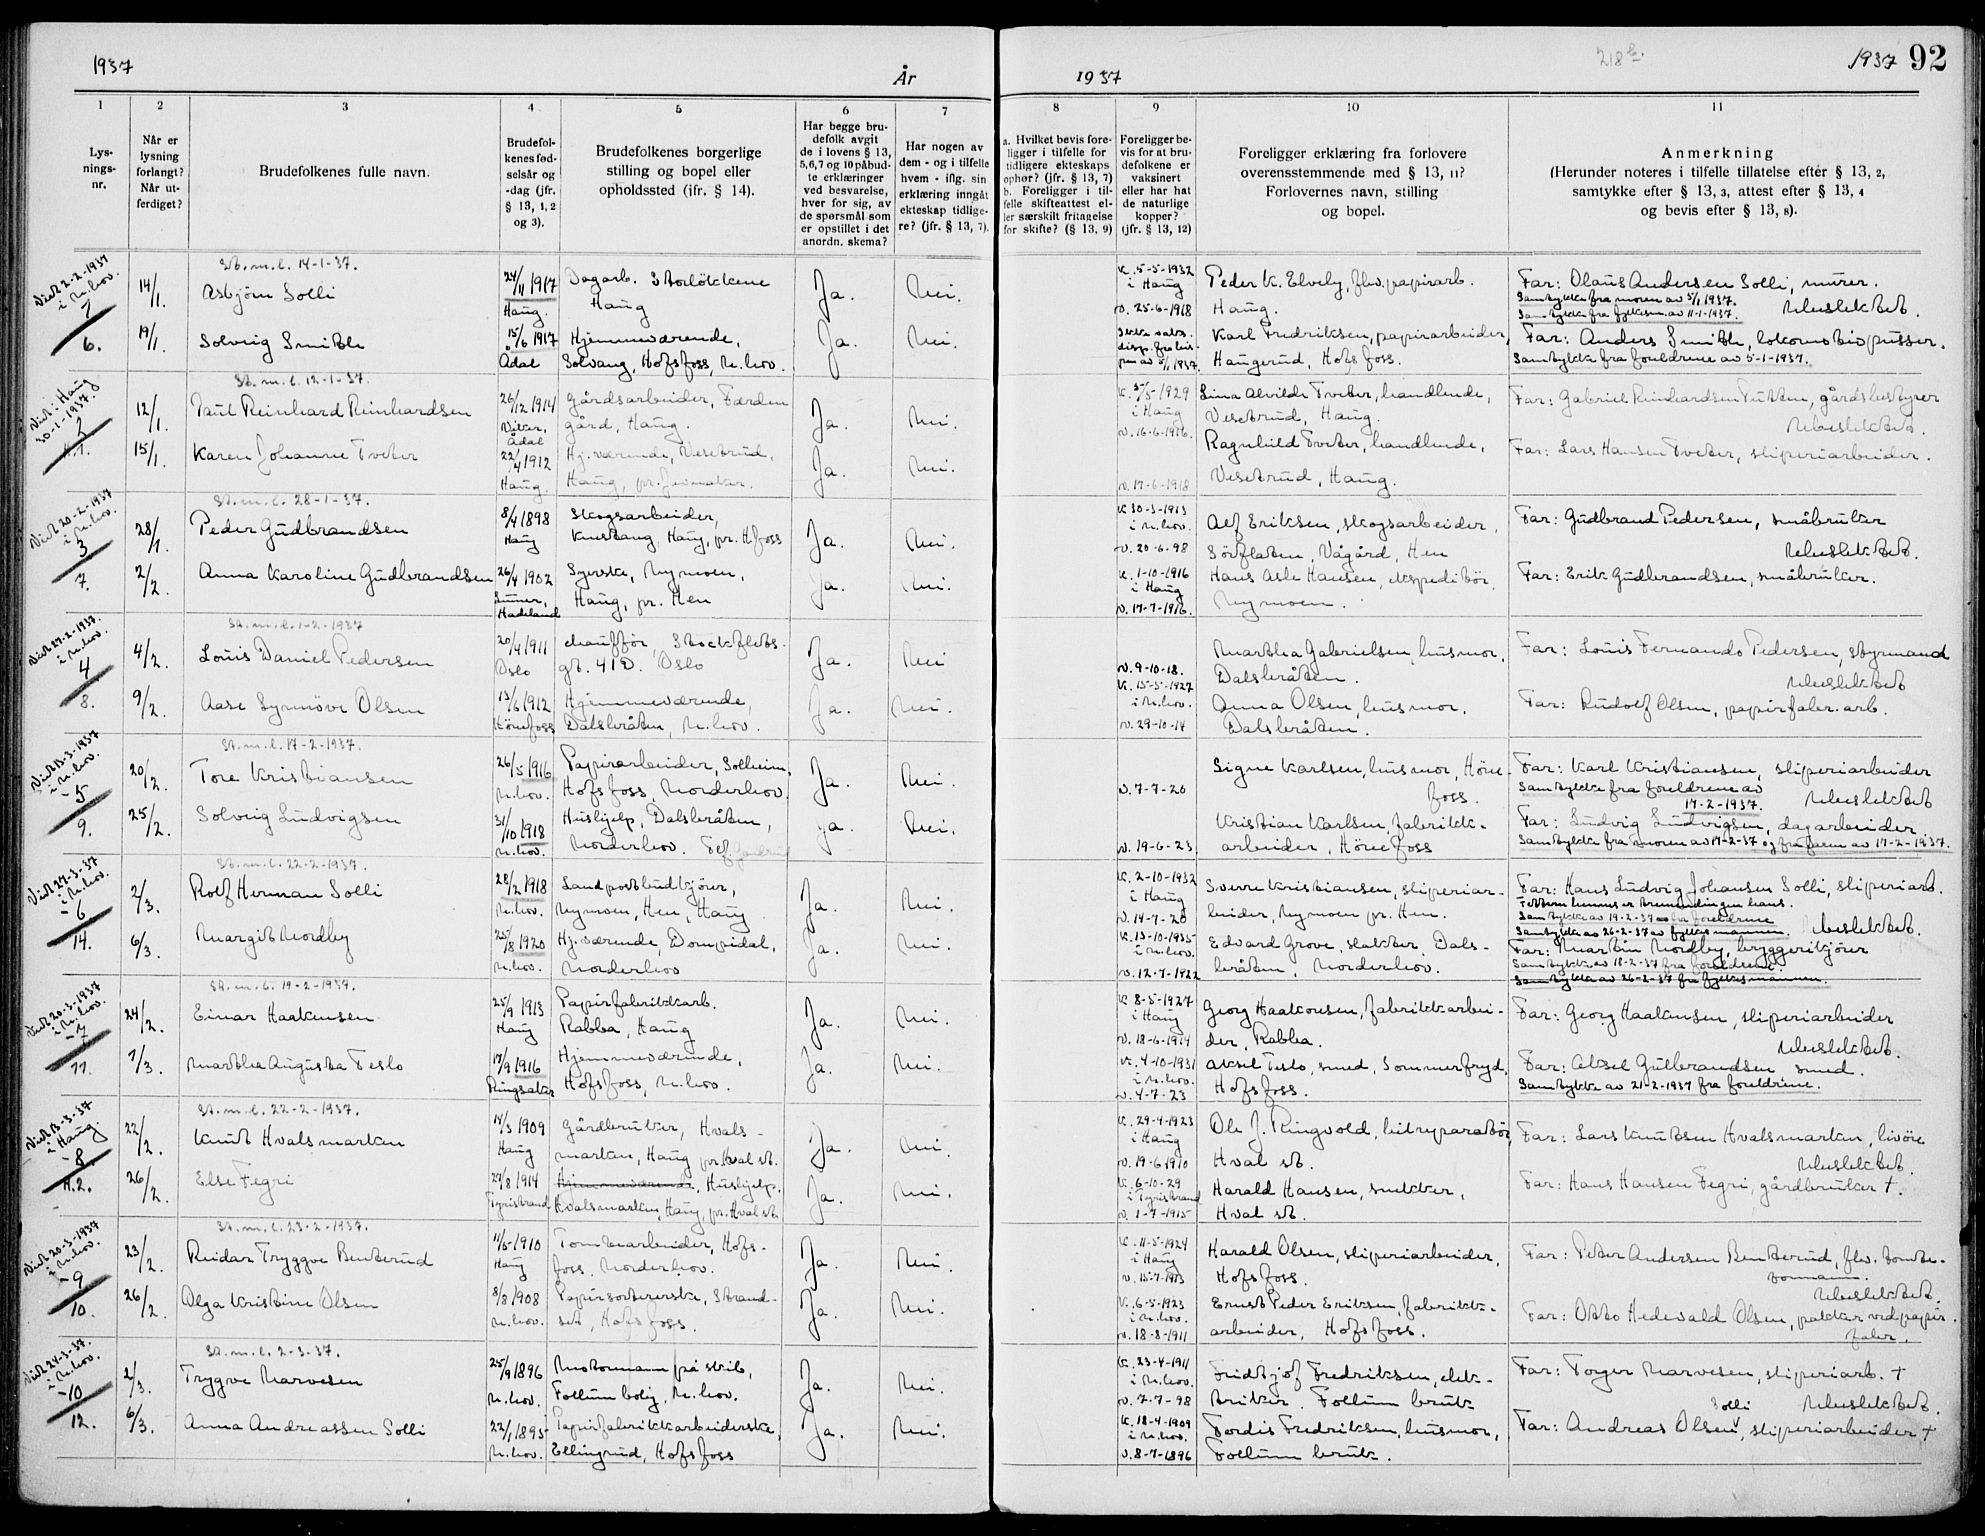 1937
År
1937
218b.
1937 92
1
2
3
4
5
6
7
8
9
10
11
Lys-
nings-
nr.
Når er
lysning
forlangt?
Når ut-
ferdiget?
Brudefolkenes fulle navn.
Brudefol-
kenes fød-
selsår og
-dag (jfr.
§ 13, 1, 2
og 3).
Brudefolkenes borgerlige
stilling og bopel eller
opholdssted (jfr. § 14).
Har begge bru-
defolk avgit
de i lovens § 13,
5, 6, 7 og 10 påbud-
te erklæringer
ved besvarelse,
hver for sig, av
de spørsmål som
er opstillet i det
anordn. skema?
Har nogen av
dem - og i tilfelle
hvem - iflg. sin
erklæring inngåt
ekteskap tidlige-
re? (jfr. § 13, 7).
a. Hvilket bevis fore-
ligger i tilfelle for
tidligere ekteskaps
ophør? (jfr. § 13, 7)
b. Foreligger i til-
felle skifteattest el-
ler særskilt fritagelse
for skifte? (§ 13, 9)
Foreligger be-
vis for at bru-
defolkene er
vaksinert
eller har hat
de naturlige
kopper?
(jfr. § 13, 12)
Foreligger erklæring fra forlovere
overensstemmende med § 13, 11?
Forlovernes navn, stilling
og bopel.
Anmerkning
(Herunder noteres i tilfelle tillatelse efter § 13, 2,
samtykke efter § 13, 3, attest efter § 13, 4
og bevis efter § 13, 8).
Viet 2-2-1937
i N.hov.
1
6.
St.m.l. 14-1-37.
14/1. Asbjørn Solli 24/11 1917 Haug. Dagarb. Storløkkene
Haug Ja. Nei.
K. 5-5-1932
i Haug
v. 25-6-1918
Peder K. Elvely, flv. papirarb.
Haug.
Far: Olaus Andersen Solli, murer.
Samtykke fra moren av 5/1 1937.
Samtykke fra fylkesm. av 11-1-1937. Ubeslektet.
19/1. Solveig Smith 15/6 1917 Ådal Hjemmeværende,
Solvang, Hofsfoss, N.hov. Ja. Nei.
Karl Fredriksen, papirarbeider,
Haugerud, Hofsfoss.
Far: Anders Smith, lokomotivpusser.
Samtykke fra foreldrene av 5-1-1937.
Viet i Haug
30-1-1937.
2
H.1.
St.m.l. 12-1-37.
12/1. Paul Reinhard Reinhardsen 26/12 1914 Viker, Ådal Gårdsarbeider, Færden
gård, Haug. Ja. Nei.
K. 5/5-1929
i Haug
v. 16-6-1916.
Lina Alvilde Tveter, handlende,
Vesetrud, Haug.
Far: Gabriel Reinhardsen Putten, gårdsbestyrer
Ubeslektet.
15/1. Karen Johanne Tveter 22/4 1912 Haug. Hj.værende, Vesetrud,
Haug, pr. Jevnaker. Ja. Nei.
v. 17-6-1918
Ragnhild Tveter, handlende,
Vesetrud, Haug.
Far: Lars Hansen Tveter, sliperiarbeider.
Viet 20-2-1937
i N.hov.
3
7.
St.m.l. 28-1-37.
28/1. Peder Gudbrandsen 8/4 1898 Haug Skogsarbeider,
Knestang, Haug, pr. H.foss Ja. Nei.
K. 30-3-1913
i N.hov.
v. 20-6-98
Alf Eriksen, skogsarbeider,
Sørflaten, Vågård, Hen
Far: Gudbrand Pedersen, småbruker
Ubeslektet.
2/2. Anna Karoline Gudbrandsen 26/4 1902 Lunner, Hadeland Syerske, Nymoen,
Haug, pr. Hen Ja. Nei.
K. 1-10-1916
i Haug
v. 17-7-1916.
Hans Asle Hansen, ekspeditør,
Nymoen.
Far: Erik Gudbrandsen, småbruker.
Viet 27-2-1937.
i N.hov.
4
8.
St.m.l. 1-2-1937
4/2. Louis Daniel Pedersen 20/4 1911 Oslo chauffør, Stockflets-
gt. 41D. Oslo Ja. Nei
v. 9-10-18.
Marthea Gabrielsen, husmor,
Dalsbråten.
Far: Louis Fernando Pedersen, styrmand
Ubeslektet
9/2. Aase Synnøve Olsen 13/6 1912 Hønefoss Hjemmeværende,
Dalsbråten, N.hov. Ja. Nei.
K. 15-5-1927
i N.hov.
v. 29-10-14
Anna Olsen, husmor,
Dalsbråten.
Far: Rudolf Olsen, papirfabr. arb.
Viet 13-3-1937
i N.hov.
-5
9.
St.m.l. 17-2-1937.
20/2. Tore Kristiansen 26/5 1916 N.hov. Papirarbeider, Solheim,
Hofsfoss, Norderhov. Ja. Nei.
v. 7-7-20
Signe Karlsen, husmor, Høne-
foss.
Far: Karl Kristiansen, sliperiarbeider
Samtykke fra foreldrene av
17-2-1937. Ubeslektet
25/2. Solveig Ludvigsen 31/10 1918 N.hov. Hushjelp, Dalsbråten,
Norderhov. Ja. Nei.
v. 19-6-23
Kristian Karlsen, fabrikk-
arbeider, Hönefoss
Far: Ludvig Ludvigsen, dagarbeider
Samtykke fra moren av 17-2-37 og fra faren av 17-2-1937.
Viet 27-3-37
i N.hov.
-6
14.
St.m.l. 22-2-1937.
2/3. Rolf Herman Solli 28/2 1918 N.hov. Landpostbudkjører,
Nymoen, Hen, Haug Ja. Nei.
K. 2-10-1932
i Haug
v. 14-7-20
Sverre Kristiansen, sliperiar-
beider, Nymoen pr. Hen.
Far: Hans Ludvig Johansen Solli, sliperiarb.
Samtykke av 19-2-37 fra foreldrene
Samtykke av 26-2-37 av fylkesmannen. Ubeslektet.
6/3. Margit Nordby 25/8 1920 N.hov. Hj.værende, Dompidal,
Norderhov Ja. Nei.
K. 13-10-1935
i N.hov.
v. 12-7-1922
Edvard Grove, slakter, Dals-
bråten, Norderhov.
Far: Martin Nordby, bryggerikjører
Samtykke av 18-2-37 fra foreldrene.
Samtykke av 26-2-37 fra fylkesmannen.
Viet 20-3-1937
i N.hov.
-7
11.
St.m.l. 19-2-1937.
24/2. Einar Haakensen 25/9 1913 Haug Papirfabrikkarb.
Rabba, Haug Ja. Nei.
K. 8-5-1927
i Haug
v. 18-6-1914
Georg Haakonsen, fabrikkarbei-
der, Rabba.
Far: Georg Haakensen, sliperiarbeider
Ubeslektet.
1/3. Marthea Augusta Teslo 17/9 1916 Ringsaker Hjemmeværende,
Hofsfoss, N.hov. Ja. Nei.
K. 4-10-1931
i N.hov.
v. 4-7-23
Aksel Teslo, smed, Sommerfryd,
Hofsfoss.
Far: Aksel Gulbrandsen smed.
Samtykke av 21-2-1937 fra foreldrene.
Viet 13-3-37
i Haug.
-8
H.2.
St.m.l. 22-2-1937.
22/2. Knut Hvalsmarken 14/3 1909 Haug Gårdbruker, Hvals-
marken, Haug, pr. Hval st. Ja. Nei.
K. 29-4-1923
i Haug
v. 19-6-1910
Ole J. Ringvold, bilreparatør,
Hval st.
Far: Lars Knutsen Hvalsmarken, livøre
Ubeslektet.
26/2. Else Fegri 27/8 1914 Tyristrand Hjemmeværende, Hushjelp.
Hvalsmarken, Haug, pr. Hval st. Ja. Nei.
K. 6-10-29
i Tyristrand
v. 1-7-1915
Harald Hansen, snekker,
Hval st.
Far: Hans Hansen Fegri, gårdbruker †.
Viet 20-3-1937
i N.hov.
-9
10.
St.m.l. 23-2-1937.
23/2. Reidar Tryggve Benterud 11/5-1910 Haug Tomtearbeider, Hofs-
foss. Norderhov. Ja. Nei.
K. 11-5-1924
i Haug
v. 15-7-1913
Harald Olsen, sliperiarbeider,
Hofsfoss.
Far: Peter Andersen Benterud, flv. tomte-
formann.
Ubeslektet.
26/2. Olga Kristine Olsen 8/8 1908 N.hov. Papirsortererske, Strand-
set, Hofsfoss. Ja. Nei.
K. 6-5-1923
i N.hov.
v. 18-8-1911
Ernst Peder Eriksen, fabrikk-
arbeider, Hofsfoss.
Far: Otto Hedevald Olsen, pakker ved papir-
fabr.
Viet 24-3-37.
i N.hov.
-10
12.
St.m.l. 2-3-37.
2/3. Trygve Narvesen 25/9 1896 N.hov. Motormann på skib,
Follum bolig, N.hov. Ja. Nei.
K. 23-4-1911
i N.hov.
v. 7-7-98
Fridtjof Fredriksen, elek-
triker. Follum bruk
Far: Torger Narvesen, sliperiarb. †
Ubeslektet.
6/3. Anna Andreassen Solli 22/1 1895 N.hov. Papirfabrikkarbeiderske,
Ellingrud, Hofsfoss Ja. Nei.
K. 18-4-1909
i N.hov.
v. 8-7-1896
Tordis Fredriksen, husmor,
Follum bruk.
Far: Andreas Olsen Solli, sliperiarbeider †